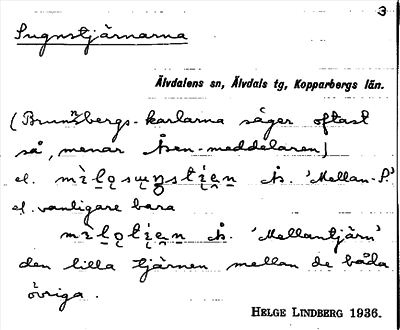 3
Sugnstjärnarna
Älvdalens sn, Älvdals tg, Kopparbergs län.
(Brunnsbergs-karlarna säger oftast
så, menar Åsen-meddelaren)
el. Ås. 'Mellan-S.'
el. vanligare bara
Ås. 'Mellantjärn'
den lilla tjärnen mellan de båda
övriga.
HELGE LINDBERG 1936.